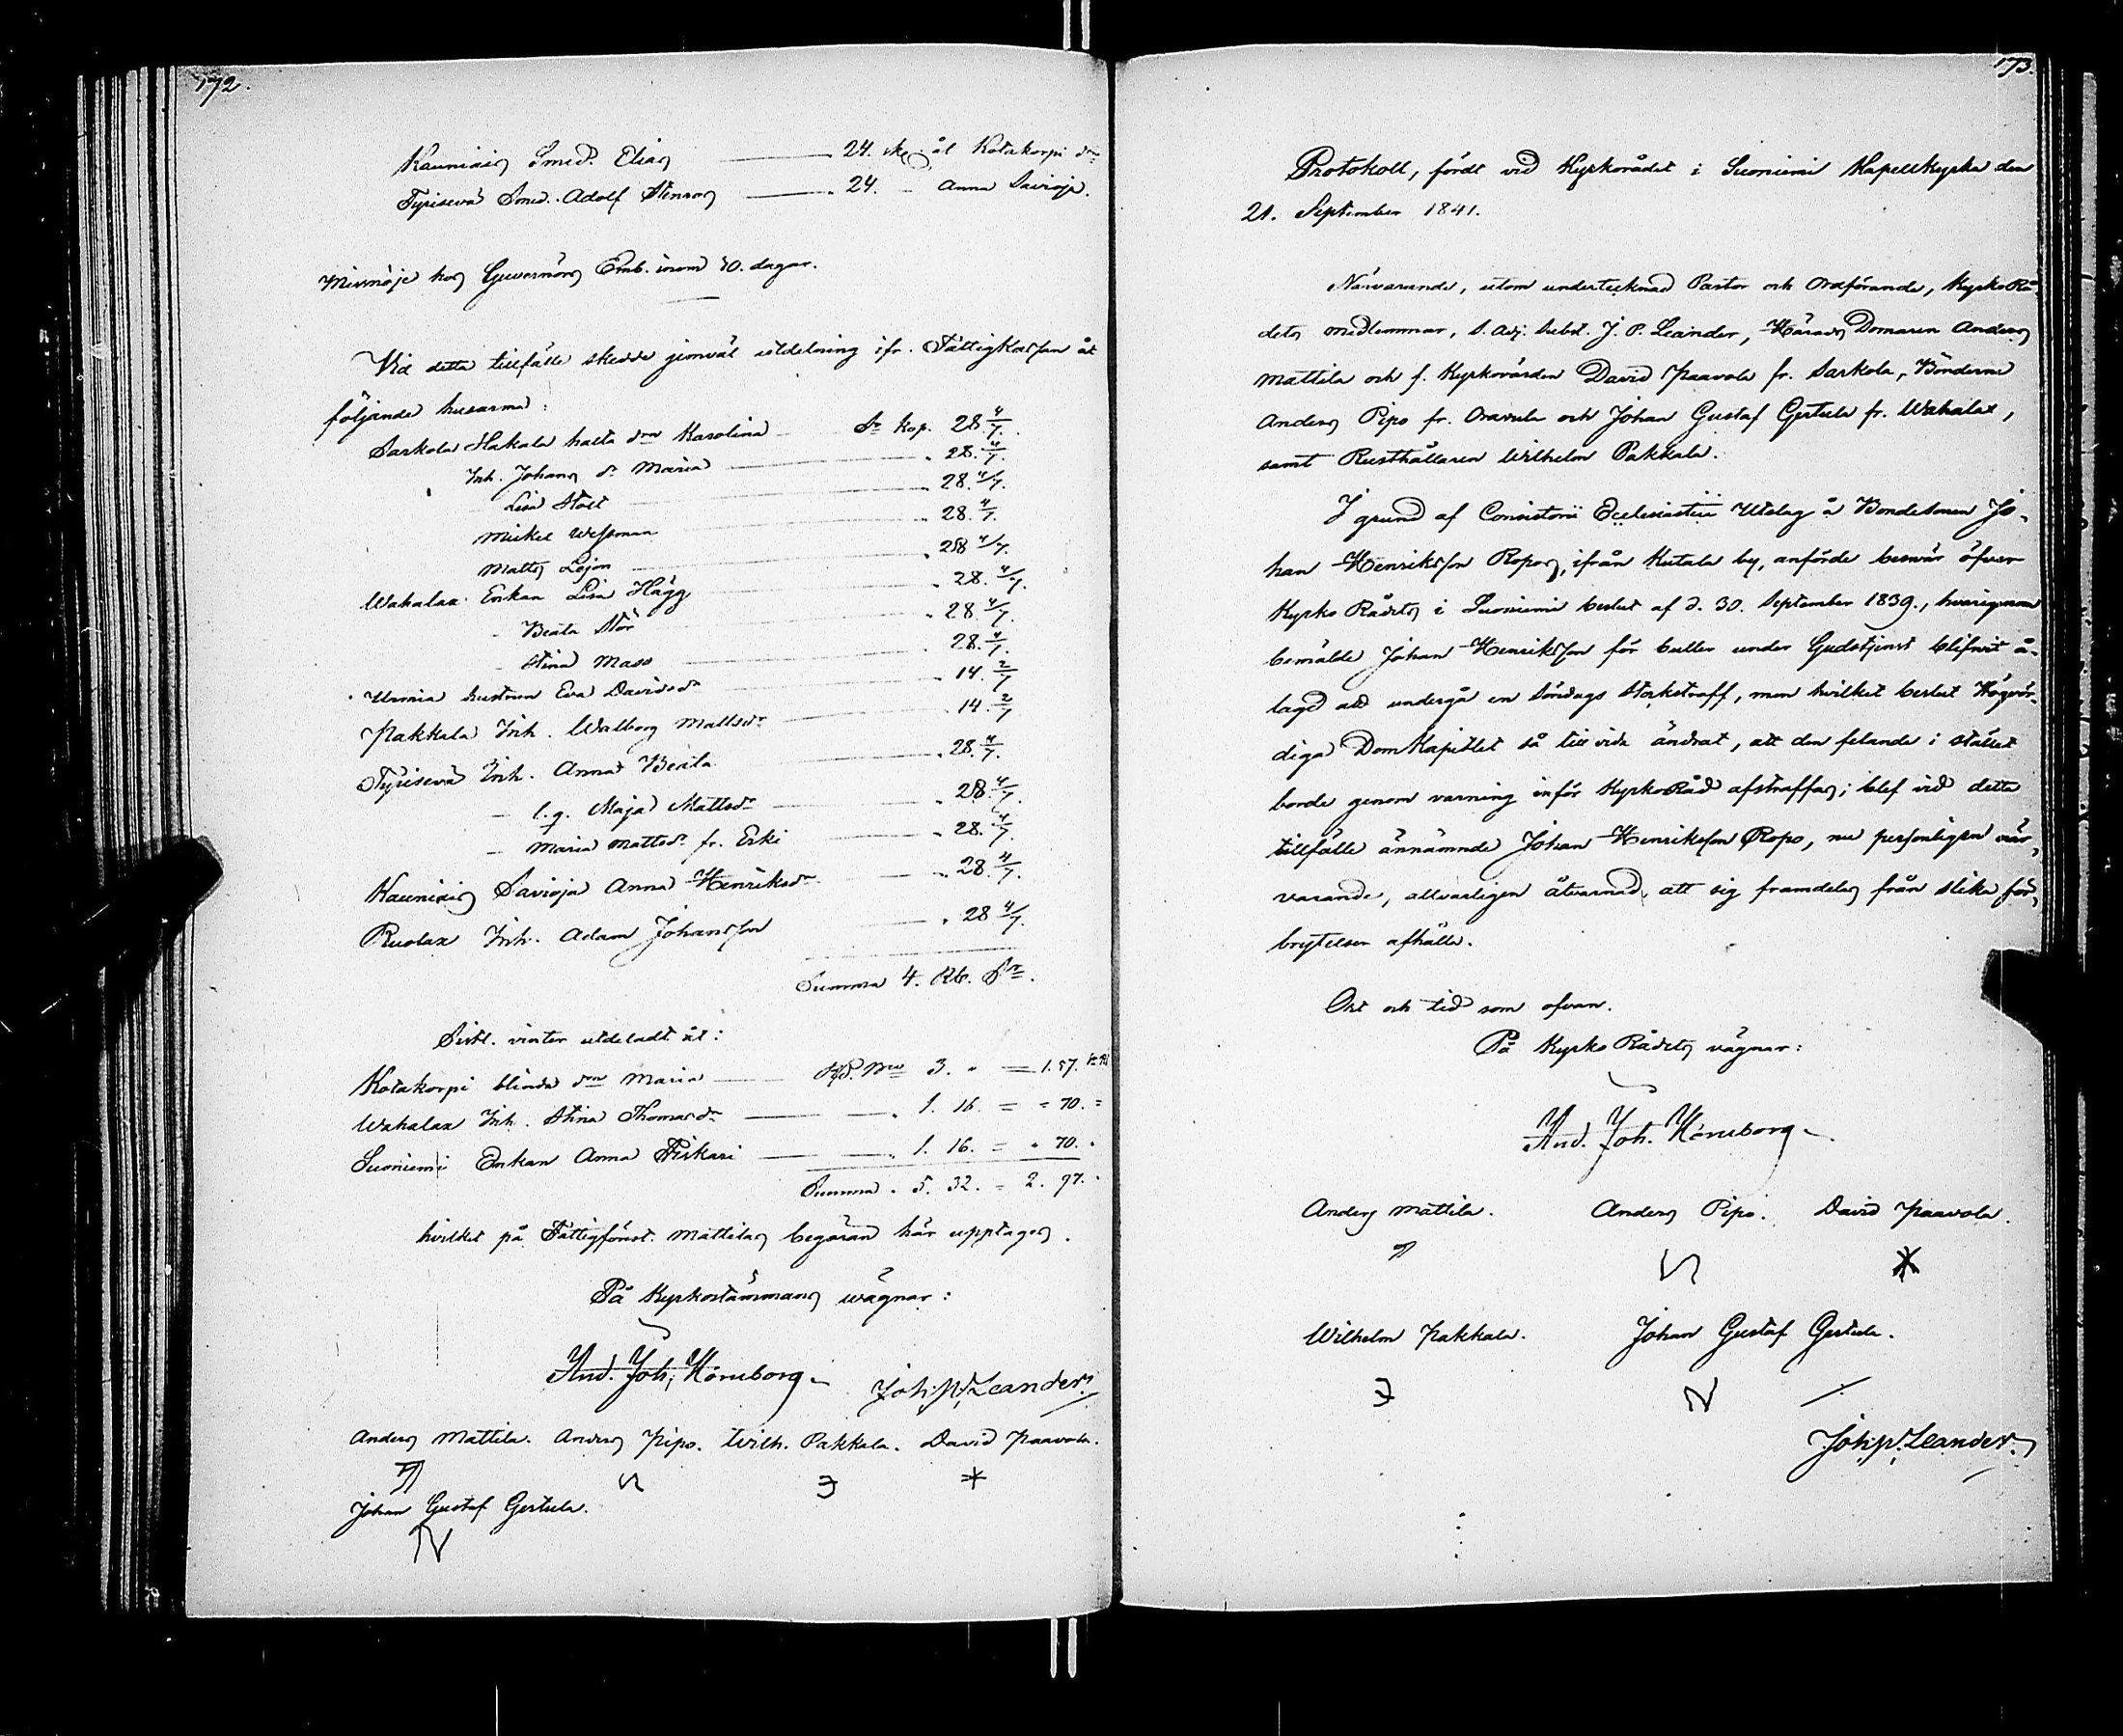 172.
Kauniais Smed. Elias — 24. sk. åt Kotakorpi dn
Tyrisevä Smed. Adolf Stenroos — 24. – Anna Savioja.
Missnöje hos Guvernörs Emb. inom 30. dagar.
Vid detta tillfälle skedde jemväl utdelning ifr. Fattigkassan åt
följande husarma:
Sarkola Hakala halta dn Karolina – Sr kop. 28 4/7.
Inh. Johans dr Maria — " 28. 4/7.
Lisa Stolt — " 28. 4/7.
Mickel Wessman — " 28. 4/7.
Matts Lejon — " 28 4/7.
Wahalax Enkan Lisa Hägg — " 28. 4/7.
– Beata Stör — " 28 4/7.
– Stina Mass — " 28. 4/7.
Urmia hustrun Eva Davidsdr — " 14. 2/7
Pakkala Inh. Walborg Mattsdr — " 14. 2/7
Tyrisevä Inh. Anna Beata — " 28. 4/7.
– l.q. Maja Mattsdr — " 28. 4/7.
– Maria Mattsdr fr. Erki — " 28. 4/7.
Kauniais Savioja Anna Henriksdr — " 28. 4/7.
Ruolax Inh. Adam Johansson — " 28 4/7.
Summa 4. Rb. Sr.
Sistl. vinter utdeladt åt:
Kotakorpi blinda dn Maria — 3. " = 1. 57.
Wahalax Inh. Stina Thomasdr — " 1. 16. = " 70. "
Suoniemi Enkan Anna Fiskari — " 1. 16. = " 70. "
Summa " 5. 32. = 2. 97. "
hvilket på Fattigförest. Mattilas begäran här upptages.
På Kyrkostämmans wägnar:
And. Joh. Hörnborg
Joh. P. Leander
Anders Mattila. Anders Pipo. Wilh. Pakkala. David Paavola.
Johan Gustaf Gertula.
173.
Protokoll, fördt vid Kyrkorådet i Suoniemi Kapellkyrka den
21. September 1841.
Närvarande, utom undertecknad Pastor och Ordförande, Kyrko Rå-
dets medlemmar, S. Adj. Subst. J. P. Leander, Härads Domaren Anders
Mattila och f. Kyrkovärden David Paavola fr. Sarkola, Bönderne
Anders Pipo fr. Oravula och Johan Gustaf Gertula fr. Wahalax,
samt Rusthållaren Wilhelm Pakkala.
I grund af Consistorii Ecclesiastici Utslag å Bondesonen Jo-
han Henriksson Ropos, ifrån Kutala by, anförde besvär öfver
Kyrko Rådets i Suoniemi beslut af d. 30. September 1839., hvarigenom
bemälde Johan Henriksson för buller under Gudstjenst blifvit å-
lagd att undergå en Söndags stockstraff, men hvilket beslut Högvör-
diga DomKapitlet så till vida ändrat, att den felande i stället
borde genom varning inför KyrkoRåd afstraffas; blef vid detta
tillfälle ännämnde Johan Henriksson Ropo, nu personligen när-
varande, allvarligen åtvarnad, att sig framdeles från slika för-
brytelser afhålla.
Ort och tid som ofvan.
På Kyrko Rådets vägnar:
And. Joh. Hörnborg
Anders Mattila. Anders Pipo. David Paavola.
Wilhelm Pakkala. Johan Gustaf Gertula.
Joh. P. Leander